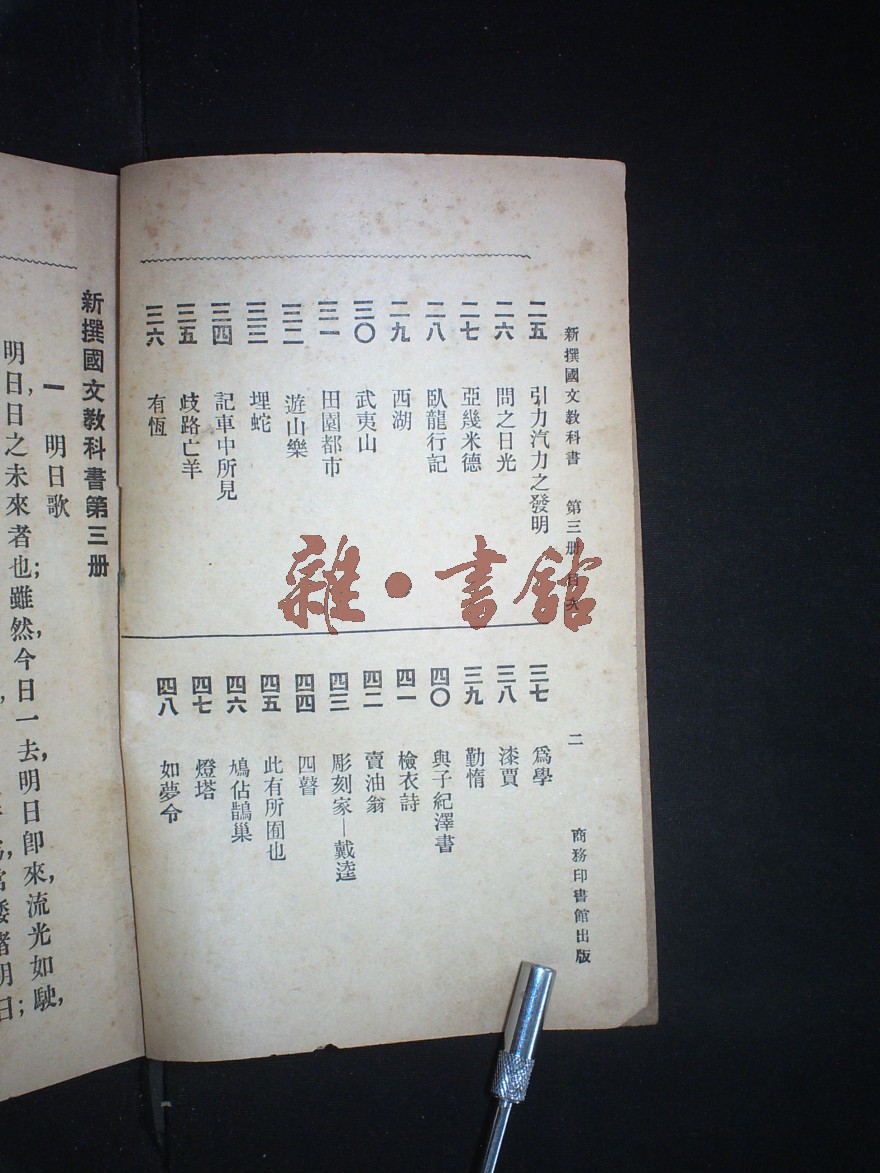 新撰國文教科書 第三册 目次 二 商務印書館出版
二五 引力汽力之發明
二六 問之日光
二七 亞幾米德
二八 臥龍行記
二九 西湖
三〇 武夷山
三一 田園都市
三二 遊山樂
三三 埋蛇
三四 記車中所見
三五 歧路亡羊
三六 有恆
三七 爲學
三八 漆賈
三九 勤惰
四〇 與子紀澤書
四一 檢衣詩
四二 賣油翁
四三 彫刻家—戴逵
四四 四瞽
四五 此有所囿也
四六 鳩佔鵲巢
四七 燈塔
四八 如夢令
雜·書館
新撰國文教科書第三册
一 明日歌
明日,日之未來者也;雖然,今日一去,明日卽來,流光如駛,